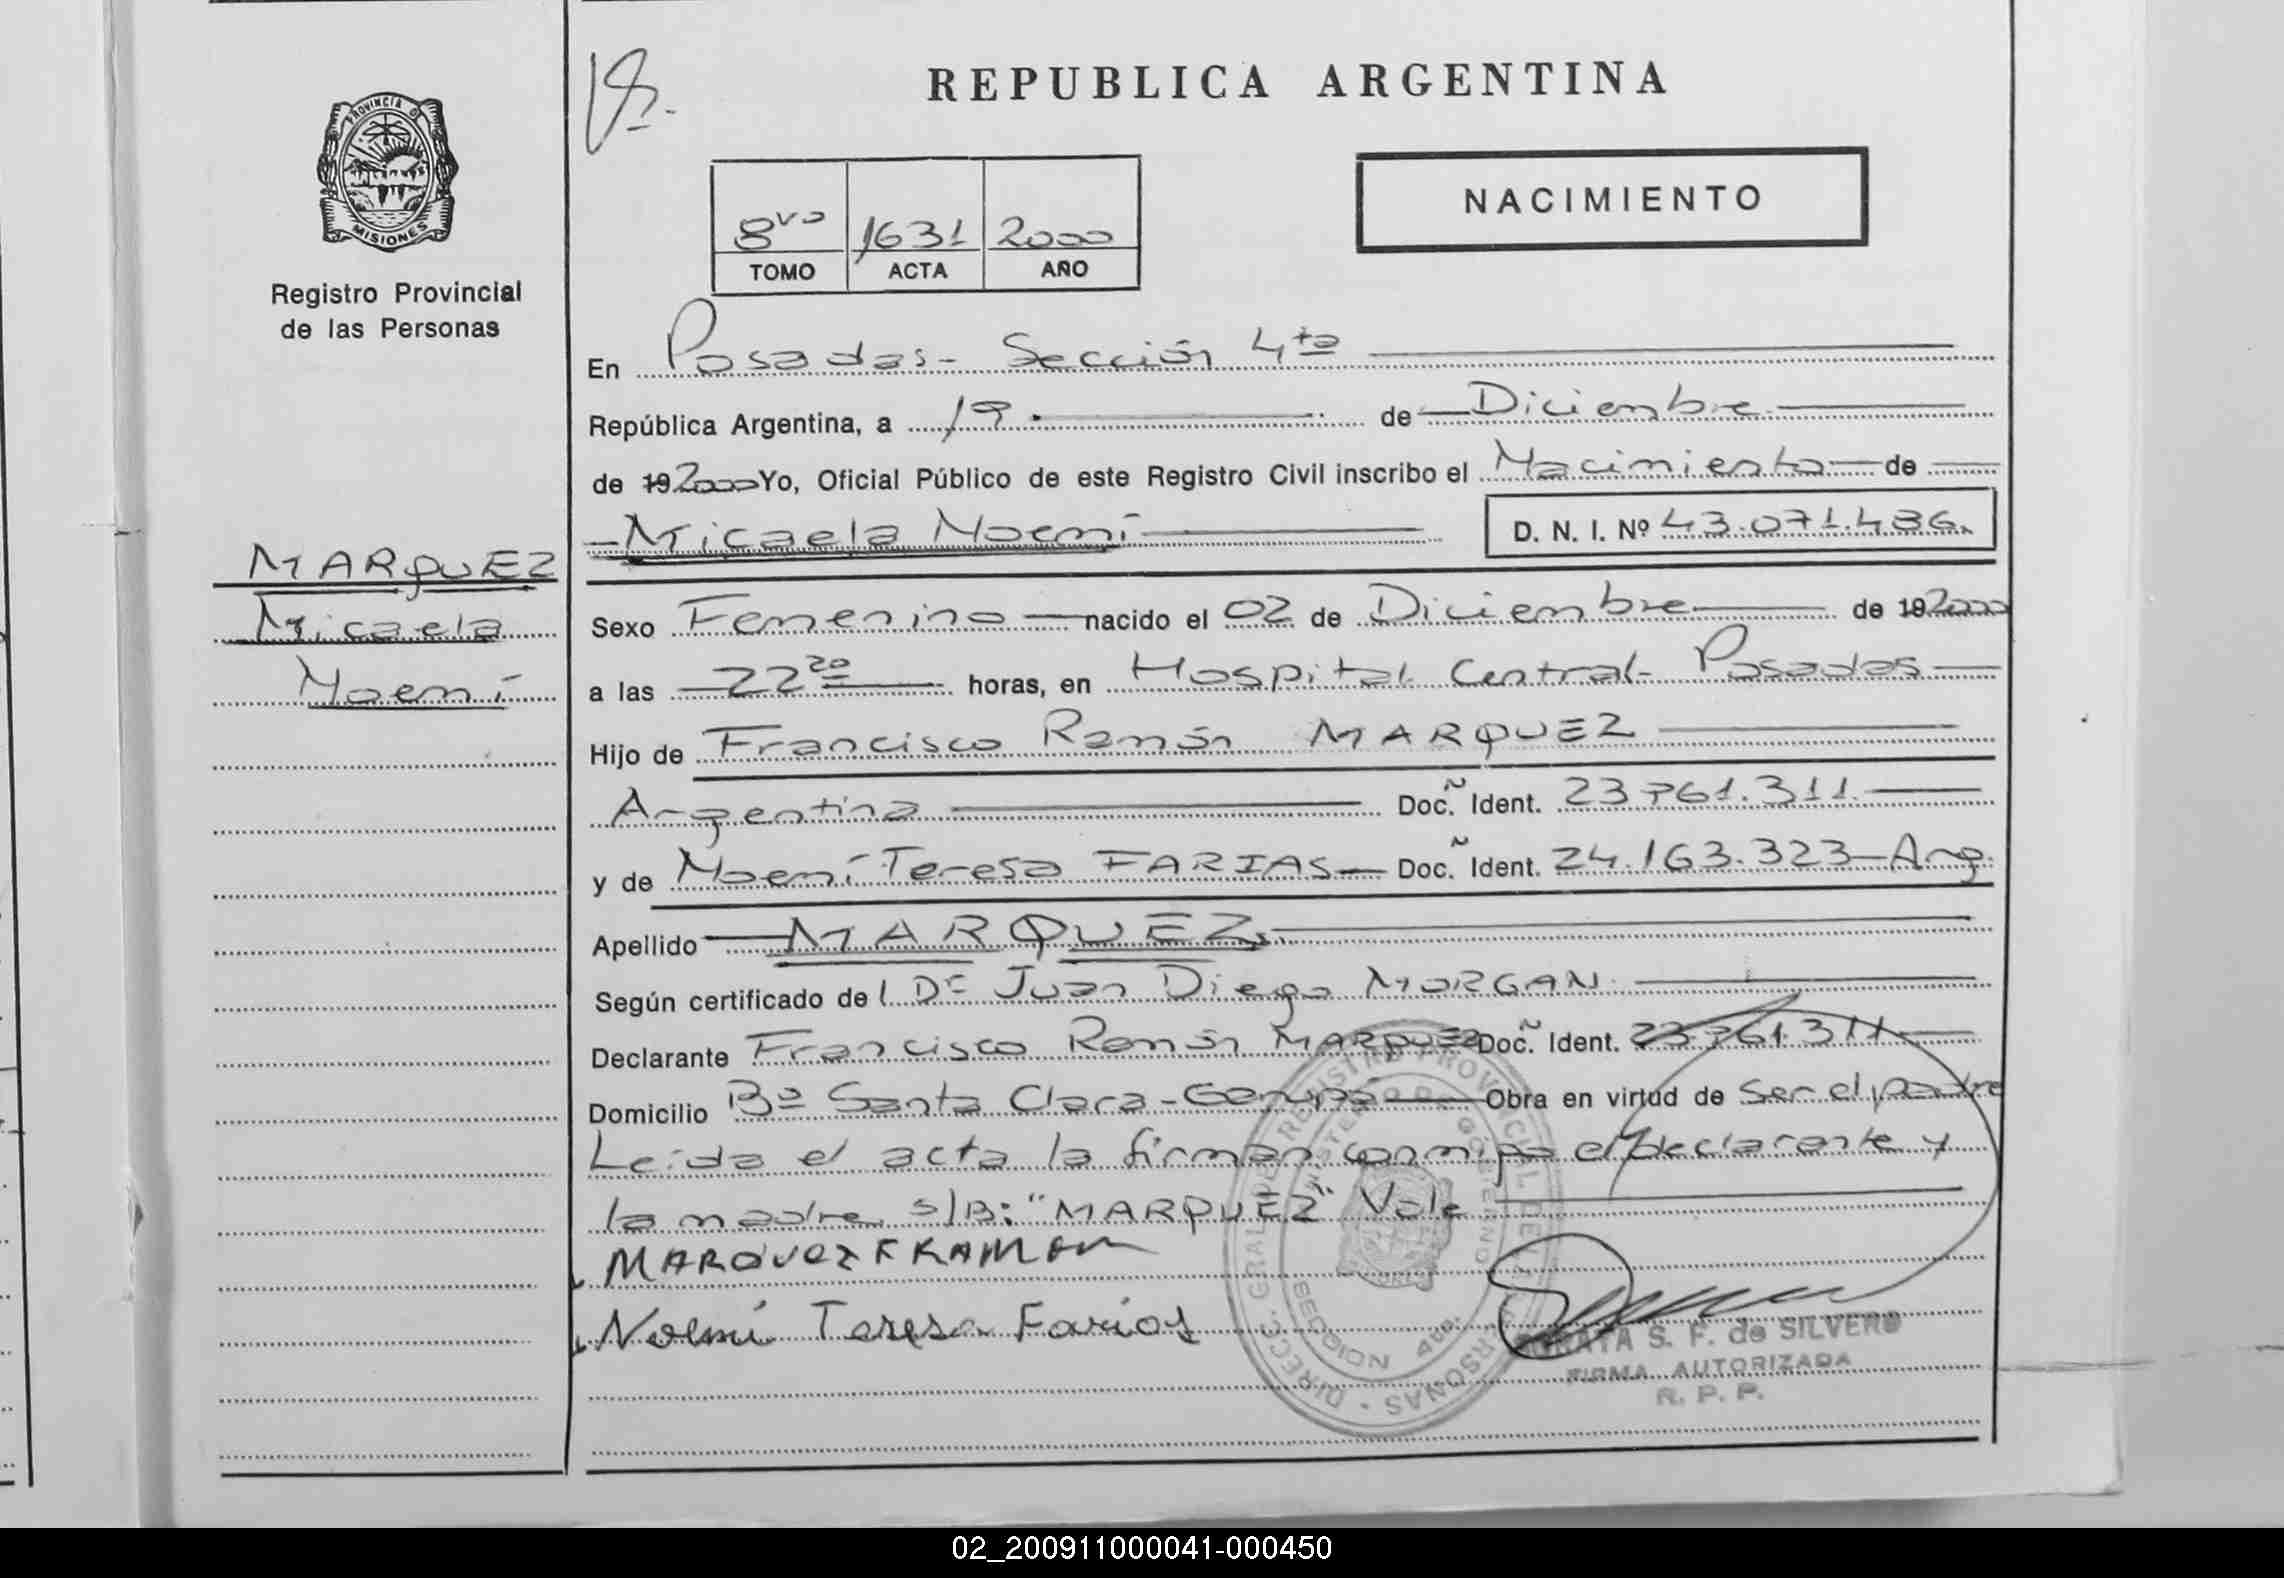 REPUBLICA ARGENTINA
PROVINCIA D
MISIONES
Registro Provincial
de las Personas
NACIMIENTO
8vo 1631 2000
TOMO ACTA AÑO
En Posadas - Sección 4ta
República Argentina, a 19 de Diciembre
de 19 2000 Yo, Oficial Público de este Registro Civil inscribo el Nacimiento de
Micaela Noemí
D. N. I. Nº 43.071.486.
MARQUEZ
Micaela
Noemí
Sexo Femenino nacido el 02 de Diciembre de 19 2000
a las 22 20 horas, en Hospital Central - Posadas
Hijo de Francisco Ramón MARQUEZ
Argentina Doc. Ident. 23.761.311
y de Noemí Teresa FARIAS Doc. Ident. 24.163.323 - Arg.
Apellido MARQUEZ
Según certificado del Dr Juan Diego MORGAN
Declarante Francisco Ramón MARQUEZ Doc. Ident. 23.761.311
Domicilio Bº Santa Clara - Garupá Obra en virtud de Ser el padre
Leída el acta la firman conmigo el declarante y
la madre s/B: "MARQUEZ" Vale
MARQUEZ F RAMON
Noemi Teresa Farias
SECCION 4ta.
S. F. de SILVERO
FIRMA AUTORIZADA
R. P. P.
02_200911000041-000450